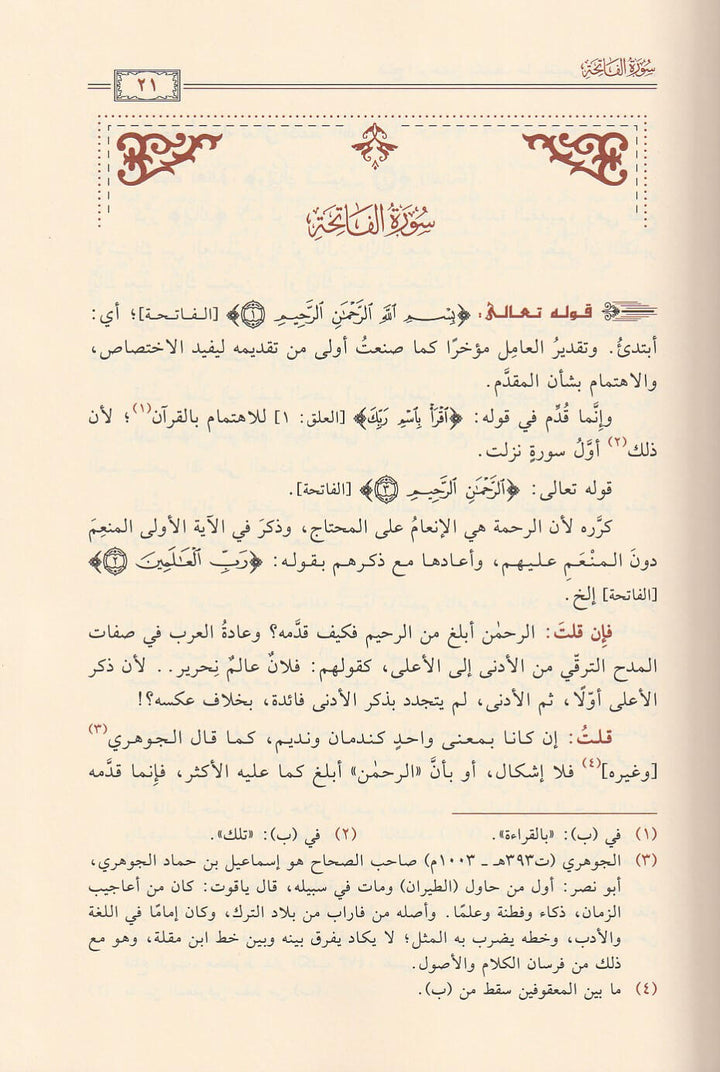 سُورَةُ الفَاتِحَةِ
٢١
سُورَةُ الفَاتِحَةِ
قوله تعالىٰ: ﴿بِسْمِ ٱللَّهِ ٱلرَّحْمَٰنِ ٱلرَّحِيمِ ۝١﴾ [الفاتحة]؛ أي:
أبتدئُ. وتقديرُ العامِل مؤخرًا كما صنعتُ أولى من تقديمه ليفيد الاختصاص،
والاهتمام بشأن المقدَّم.
وإنَّما قُدِّم في قوله: ﴿ٱقْرَأْ بِٱسْمِ رَبِّكَ﴾ [العلق: ١] للاهتمام بالقرآن(١)؛ لأن
ذلك(٢) أوَّلُ سورةٍ نزلت.
قوله تعالى: ﴿ٱلرَّحْمَٰنِ ٱلرَّحِيمِ ۝٣﴾ [الفاتحة].
كرَّره لأن الرحمة هي الإنعامُ على المحتاج، وذكرَ في الآية الأولى المنعِمَ
دونَ المنْعَمِ عليهم، وأعادها مع ذكرهم بقوله: ﴿رَبِّ ٱلْعَٰلَمِينَ ۝٢﴾
[الفاتحة] إلخ.
فإن قلتَ: الرحمٰن أبلغ من الرحيم فكيف قدَّمه؟ وعادةُ العرب في صفات
المدح الترقّي من الأدنى إلى الأعلى، كقولهم: فلانٌ عالمٌ نِحرير.. لأن ذكر
الأعلى أوّلًا، ثم الأدنى، لم يتجدد بذكر الأدنى فائدة، بخلاف عكسه؟!
قلتُ: إن كانا بمعنى واحدٍ كندمان ونديم، كما قال الجوهري(٣)
[وغيره](٤) فلا إشكال، أو بأنَّ «الرحمٰن» أبلغ كما عليه الأكثر، فإنما قدَّمه
(١) في (ب): «بالقراءة». (٢) في (ب): «تلك».
(٣) الجوهري (ت٣٩٣هـ ـ ١٠٠٣م) صاحب الصحاح هو إسماعيل بن حماد الجوهري،
أبو نصر: أول من حاول (الطيران) ومات في سبيله، قال ياقوت: كان من أعاجيب
الزمان، ذكاء وفطنة وعلمًا. وأصله من فاراب من بلاد الترك، وكان إمامًا في اللغة
والأدب، وخطه يضرب به المثل؛ لا يكاد يفرق بينه وبين خط ابن مقلة، وهو مع
ذلك من فرسان الكلام والأصول.
(٤) ما بين المعقوفين سقط من (ب).